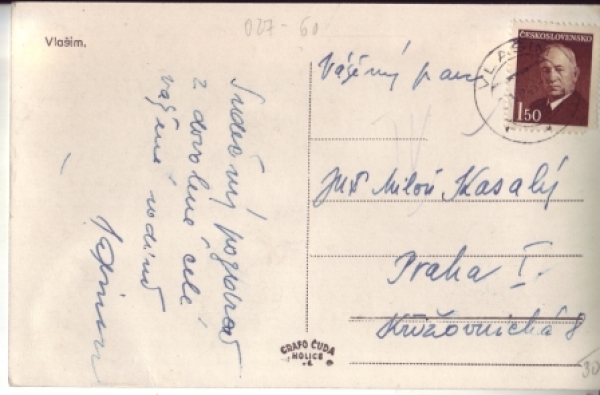 027-60
Vlašim.
Srdečný pozdrav
z dovolené celé
vážené rodině
Vážený pan
JUC Miloš Kasalý
Praha I.
Křižovnická 8
GRAFO ČUDA
HOLICE
ČESKOSLOVENSKO
1.50
30